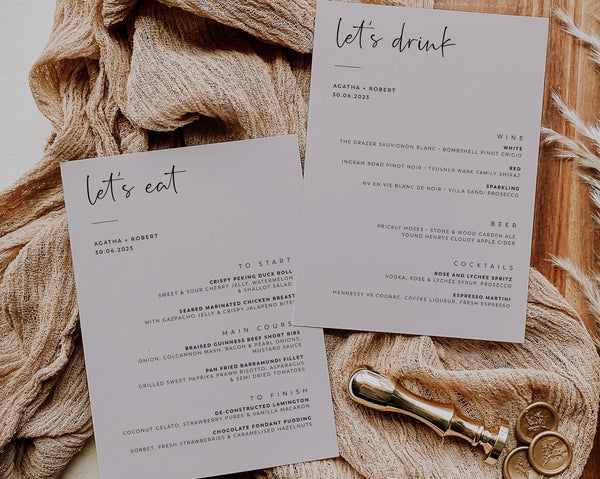 let's eat
AGATHA + ROBERT
30.06.2023
TO START
CRISPY PEKING DUCK ROLL
SWEET & SOUR CHERRY JELLY, WATERMELON
& SHALLOT SALAD
SEARED MARINATED CHICKEN BREAST
WITH GAZPACHO JELLY & CRISPY JALAPENO BITES
MAIN COURSE
BRAISED GUINNESS BEEF SHORT RIBS
ONION, COLCANNON MASH, BACON & PEARL ONIONS,
MUSTARD SAUCE
PAN FRIED BARRAMUNDI FILLET
GRILLED SWEET PAPRIKA PRAWN RISOTTO, ASPARAGUS
& SEMI DRIED TOMATOES
TO FINISH
DE-CONSTRUCTED LAMINGTON
COCONUT GELATO, STRAWBERRY PUREE & VANILLA MACARON
CHOCOLATE FONDANT PUDDING
SORBET, FRESH STRAWBERRIES & CARAMELISED HAZELNUTS
let's drink
AGATHA + ROBERT
30.06.2023
WINE
WHITE
THE GRAZER SAUVIGNON BLANC - BOMBSHELL PINOT GRIGIO
RED
INGRAM ROAD PINOT NOIR - TEUSNER WARK FAMILY SHIRAZ
SPARKLING
NV EN VIE BLANC DE NOIR - VILLA SANDI PROSECCO
BEER
PRICKLY MOSES - STONE & WOOD GARDEN ALE
YOUNG HENRYS CLOUDY APPLE CIDER
COCKTAILS
ROSE AND LYCHEE SPRITZ
VODKA, ROSE & LYCHEE SYRUP, PROSECCO
ESPRESSO MARTINI
HENNESSY VS COGNAC, COFFEE LIQUEUR, FRESH ESPRESSO